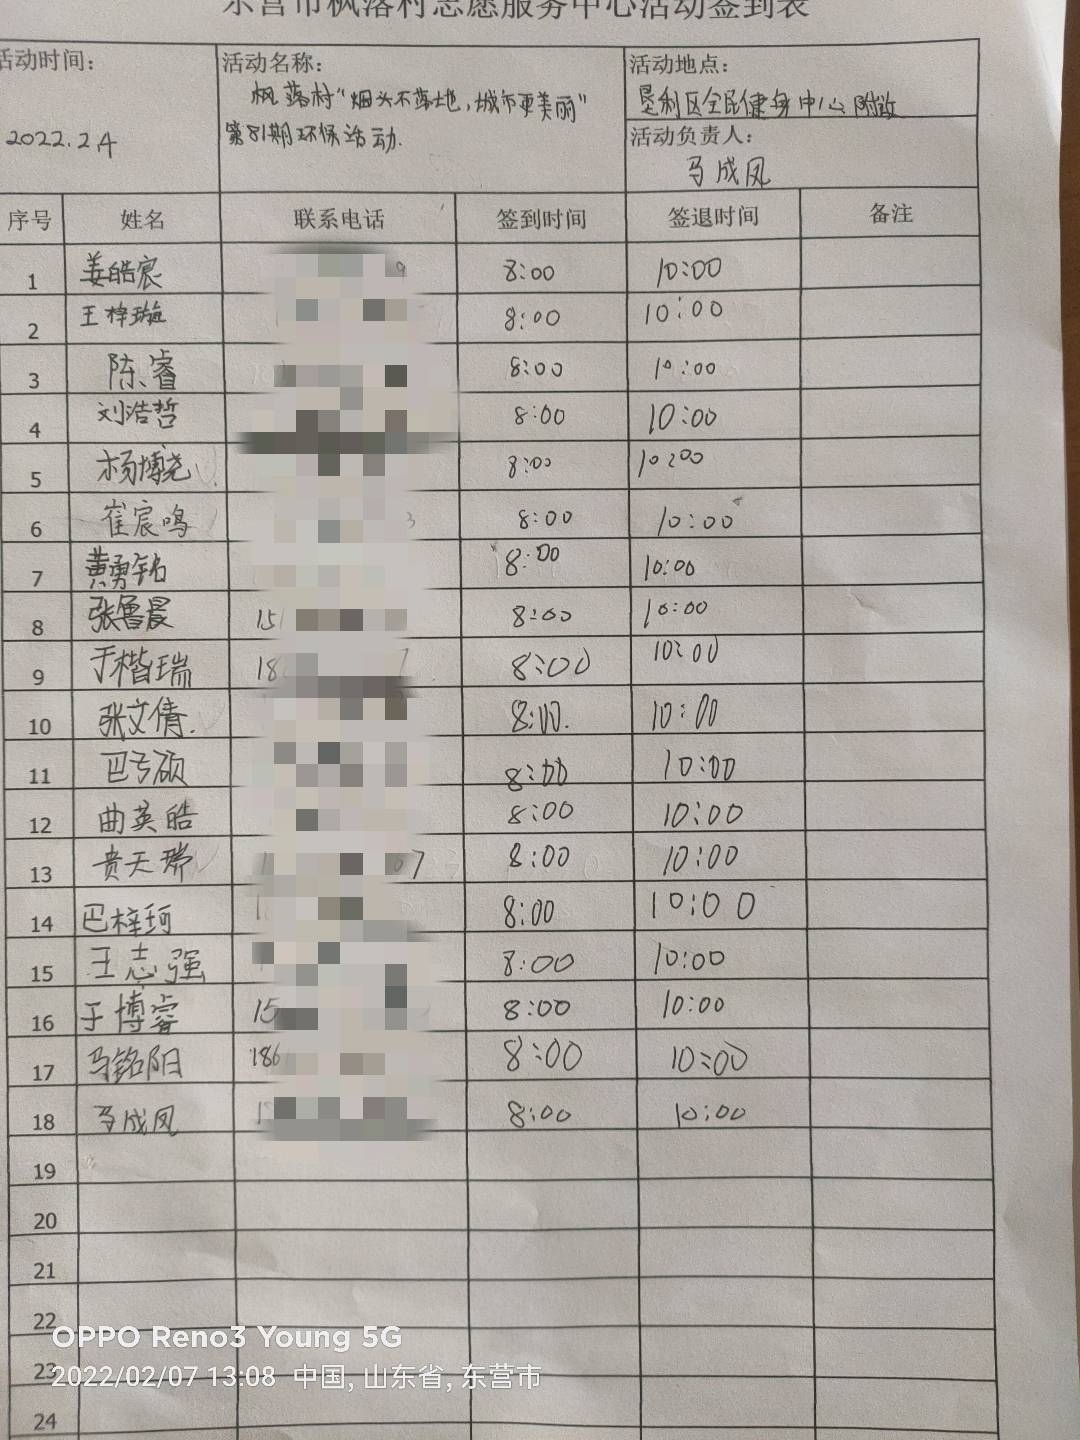 东营市枫落村志愿服务中心活动签到表
活动时间：
2022.2.4
活动名称：
枫落村“烟头不落地，城市更美丽”
第81期环保活动.
活动地点：
垦利区全民健身中心附近
活动负责人：
马成凤
序号 姓名 联系电话 签到时间 签退时间 备注
1 姜皓宸 9 8:00 10:00
2 王梓璇 8:00 10:00
3 陈睿 8:00 10:00
4 刘浩哲 8:00 10:00
5 杨博尧 8:00 10:00
6 崔宸鸣 3 8:00 10:00
7 黄勇铭 8:00 10:00
8 张鲁晨 15 8:00 10:00
9 于楷瑞 18 7 8:00 10:00
10 张文倩. 8:00. 10:00
11 巴亏硕 8:00 10:00
12 曲英皓 8:00 10:00
13 贵天瑞 1 67 8:00 10:00
14 巴梓珂 1 8:00 10:00
15 王志强 8:00 10:00
16 于博睿 15 8:00 10:00
17 马铭阳 186 8:00 10:00
18 马成凤 1 8:00 10:00
19
20
21
22
23
24
OPPO Reno3 Young 5G
2022/02/07 13:08 中国, 山东省, 东营市